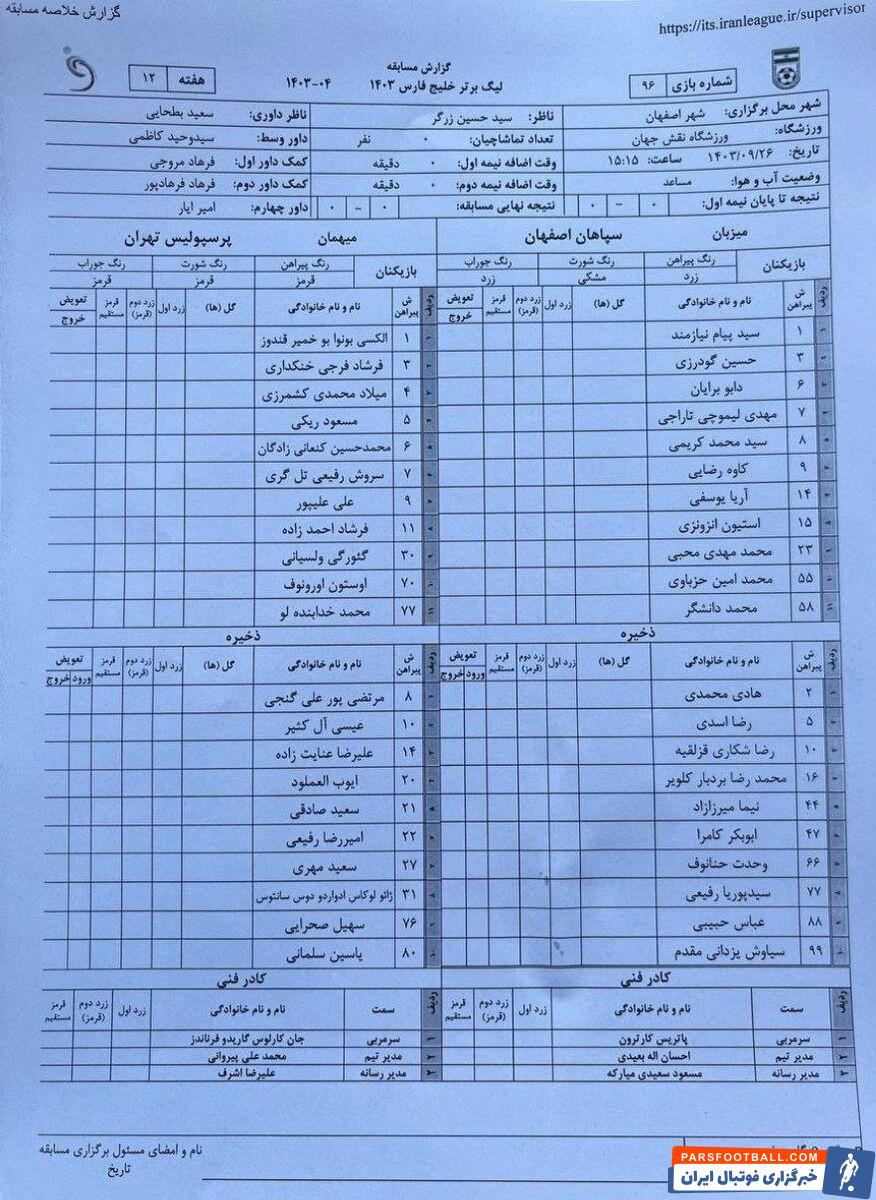 گزارش خلاصه مسابقه
https://its.iranleague.ir/supervisor
گزارش مسابقه
لیگ برتر خلیج فارس ۱۴۰۳ ۱۴۰۳-۰۴
شماره بازی ۹۶
هفته ۱۲
شهر محل برگزاری: شهر اصفهان
ناظر: سید حسین زرگر
ناظر داوری: سعید بطحایی
ورزشگاه: ورزشگاه نقش جهان
تعداد تماشاچیان: ۰ نفر
داور وسط: سیدوحید کاظمی
تاریخ: ۱۴۰۳/۰۹/۲۶ ساعت: ۱۵:۱۵
وقت اضافه نیمه اول: ۰ دقیقه
کمک داور اول: فرهاد مروجی
وضعیت آب و هوا: مساعد
وقت اضافه نیمه دوم: ۰ دقیقه
کمک داور دوم: فرهاد فرهادپور
نتیجه تا پایان نیمه اول: ۰ - ۰
نتیجه نهایی مسابقه: ۰ - ۰
داور چهارم: امیر ایار
میزبان سپاهان اصفهان
بازیکنان رنگ پیراهن رنگ شورت رنگ جوراب
زرد مشکی زرد
ردیف ش پیراهن نام و نام خانوادگی گل (ها) زرد اول زرد دوم (قرمز) قرمز مستقیم تعویض خروج
۱ ۱ سید پیام نیازمند
۲ ۳ حسین گودرزی
۳ ۶ دابو برایان
۴ ۷ مهدی لیموچی تاراجی
۵ ۸ سید محمد کریمی
۶ ۹ کاوه رضایی
۷ ۱۴ آریا یوسفی
۸ ۱۵ استیون انزونزی
۹ ۲۳ محمد مهدی محبی
۱۰ ۵۵ محمد امین حزباوی
۱۱ ۵۸ محمد دانشگر
ذخیره
ردیف ش پیراهن نام و نام خانوادگی گل (ها) زرد اول زرد دوم (قرمز) قرمز مستقیم تعویض ورود خروج
۱ ۲ هادی محمدی
۲ ۵ رضا اسدی
۳ ۱۰ رضا شکاری قزلقیه
۴ ۱۶ محمد رضا بردبار کلویر
۵ ۴۴ نیما میرزازاد
۶ ۴۷ ابوبکر کامرا
۷ ۶۶ وحدت حنانوف
۸ ۷۷ سیدپوریا رفیعی
۹ ۸۸ عباس حبیبی
۱۰ ۹۹ سیاوش یزدانی مقدم
کادر فنی
ردیف سمت نام و نام خانوادگی زرد اول زرد دوم (قرمز) قرمز مستقیم
۱ سرمربی پاتریس کارترون
۲ مدیر تیم احسان اله بعیدی
۳ مدیر رسانه مسعود سعیدی مبارکه
میهمان پرسپولیس تهران
بازیکنان رنگ پیراهن رنگ شورت رنگ جوراب
قرمز قرمز قرمز
ردیف ش پیراهن نام و نام خانوادگی گل (ها) زرد اول زرد دوم (قرمز) قرمز مستقیم تعویض خروج
۱ ۱ الکسی بونوا بو خمیر قندوز
۲ ۳ فرشاد فرجی خنکداری
۳ ۴ میلاد محمدی کشمرزی
۴ ۵ مسعود ریکی
۵ ۶ محمدحسین کنعانی زادگان
۶ ۷ سروش رفیعی تل گری
۷ ۹ علی علیپور
۸ ۱۱ فرشاد احمد زاده
۹ ۳۰ گئورگی ولسیانی
۱۰ ۷۰ اوستون اورونوف
۱۱ ۷۷ محمد خدابنده لو
ذخیره
ردیف ش پیراهن نام و نام خانوادگی گل (ها) زرد اول زرد دوم (قرمز) قرمز مستقیم تعویض ورود خروج
۱ ۸ مرتضی پور علی گنجی
۲ ۱۰ عیسی آل کثیر
۳ ۱۴ علیرضا عنایت زاده
۴ ۲۰ ایوب العملود
۵ ۲۱ سعید صادقی
۶ ۲۲ امیررضا رفیعی
۷ ۲۷ سعید مهری
۸ ۳۱ ژائو لوکاس ادواردو دوس سانتوس
۹ ۷۶ سهیل صحرایی
۱۰ ۸۰ یاسین سلمانی
کادر فنی
ردیف سمت نام و نام خانوادگی زرد اول زرد دوم (قرمز) قرمز مستقیم
۱ سرمربی جان کارلوس گاریدو فرناندز
۲ مدیر تیم محمد علی پیروانی
۳ مدیر رسانه علیرضا اشرف
نام و امضای مسئول برگزاری مسابقه
تاریخ
PARSFOOTBALL.COM
خبرگزاری فوتبال ایران